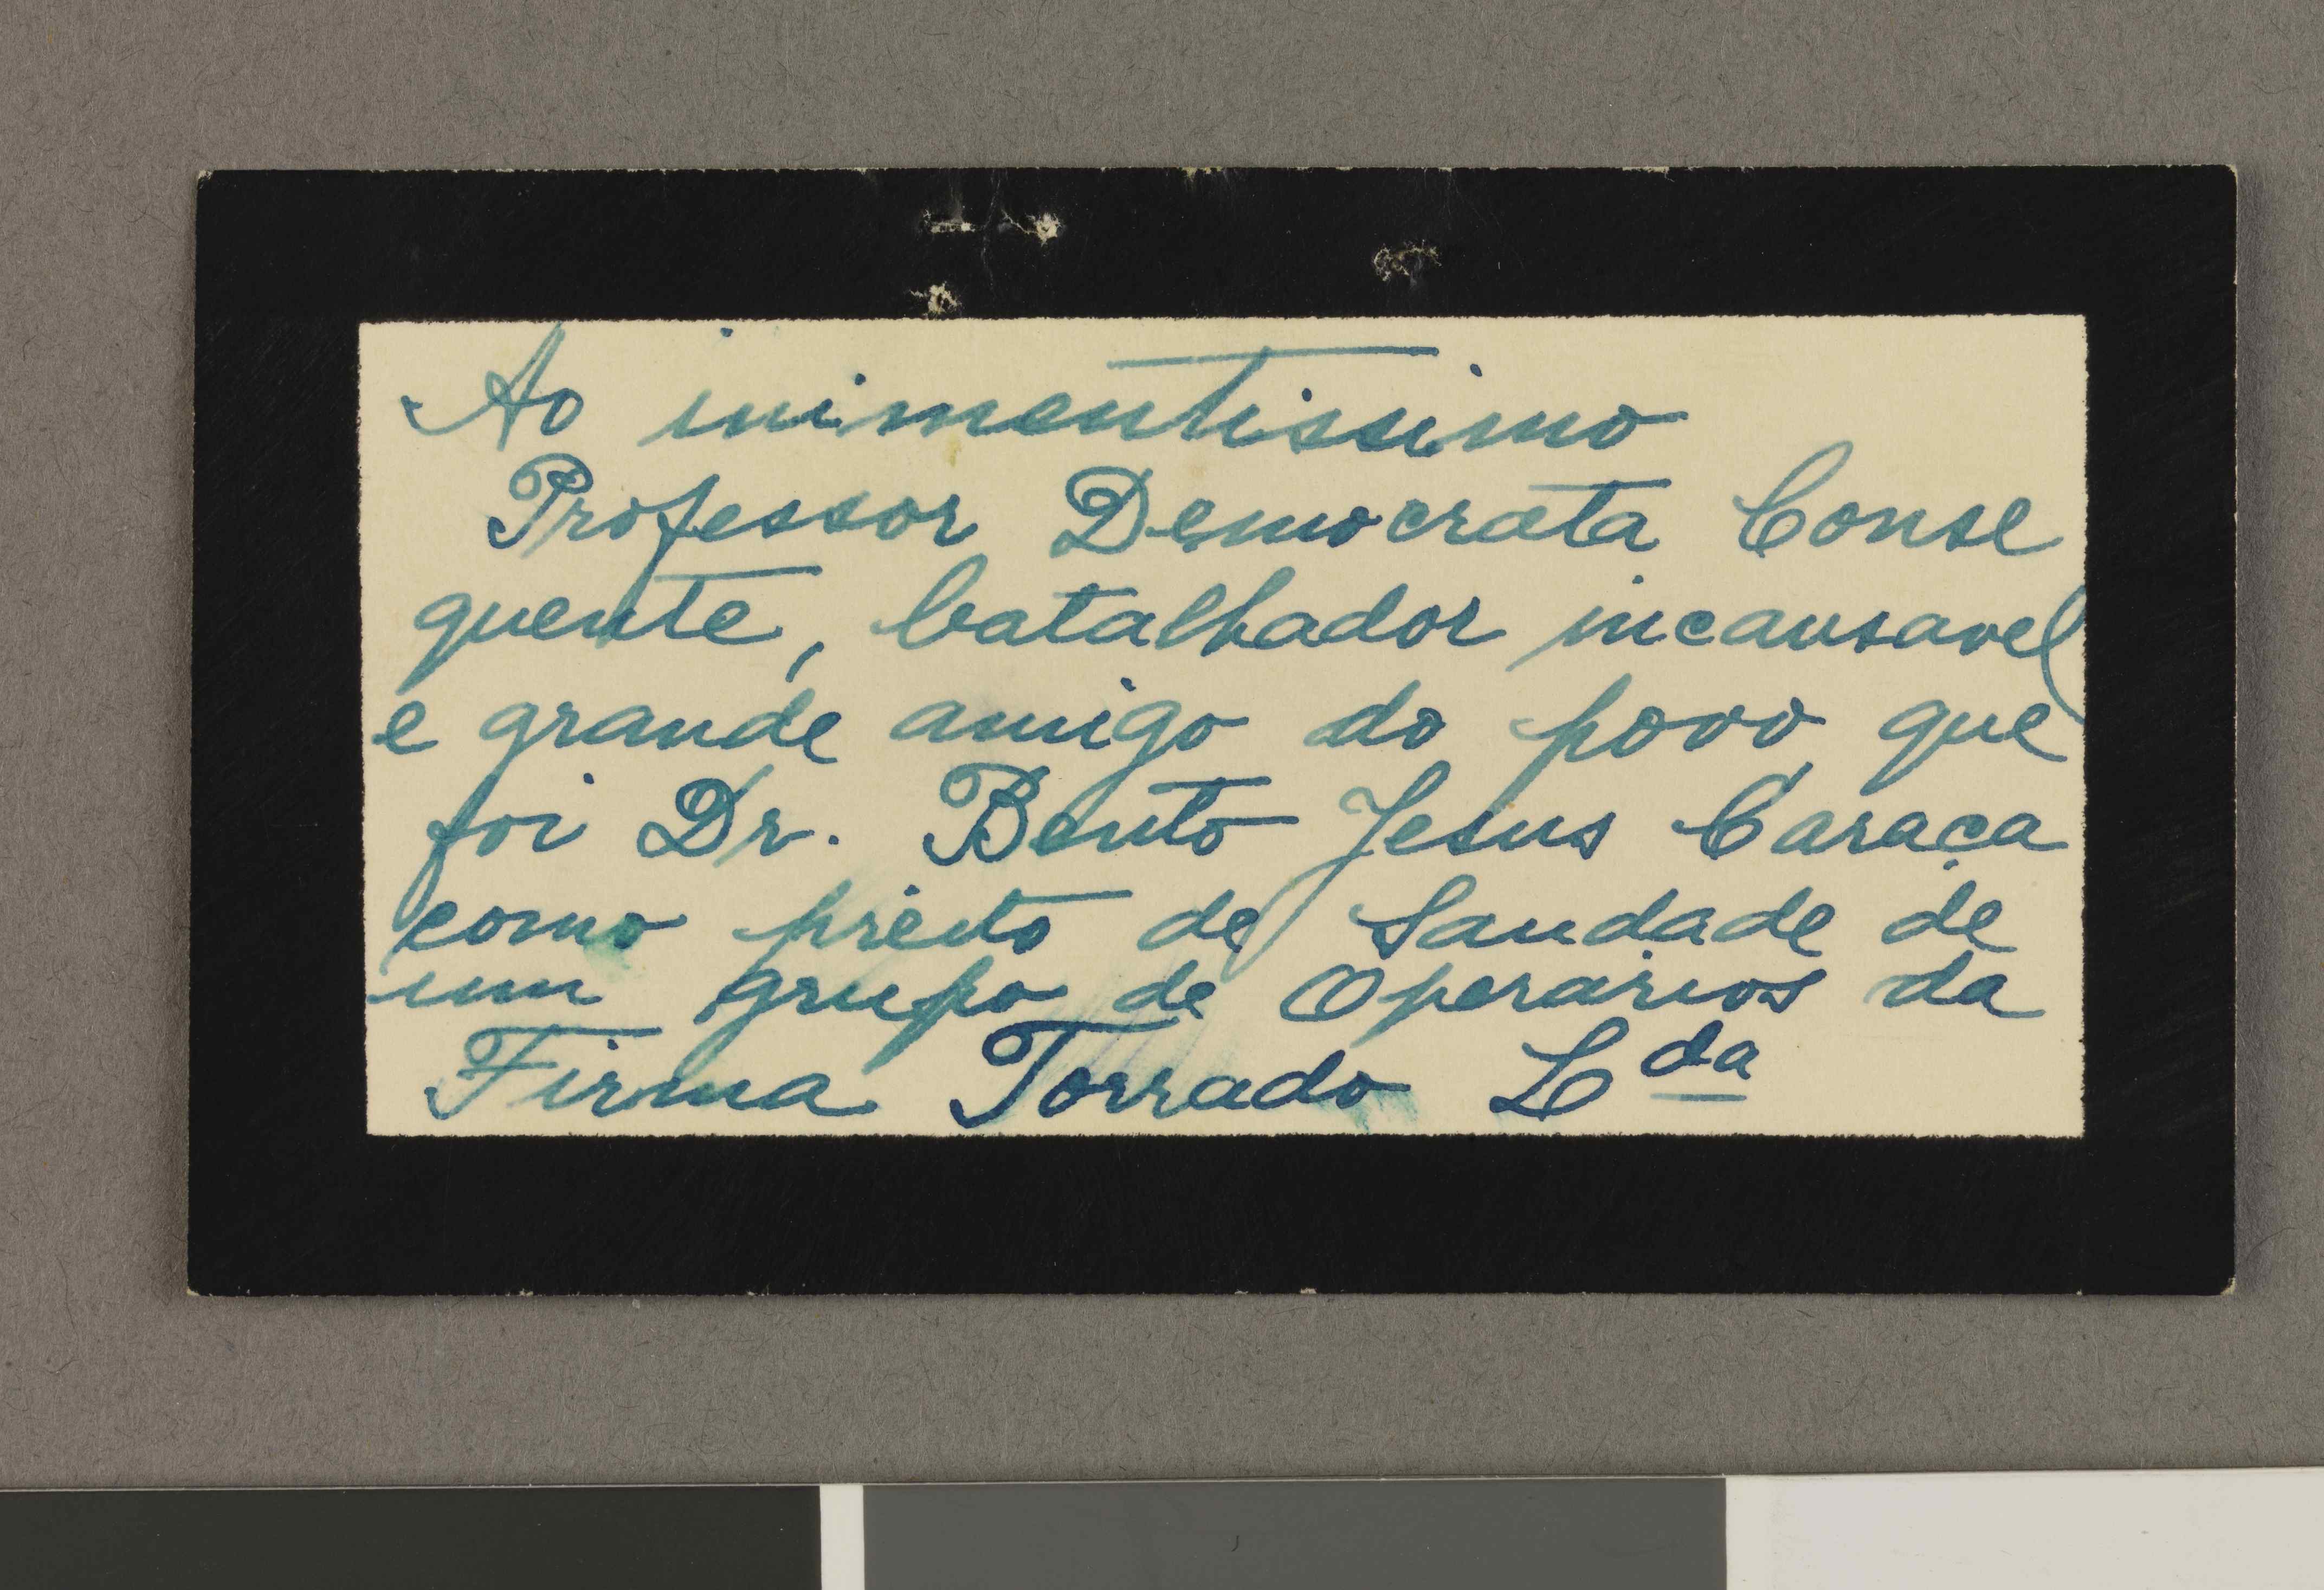 Ao inimentissimo
Professor Democrata Conse
quente, batalhador incansavel
e grande amigo do povo que
foi Dr. Bento Jesus Caraça
como preito de Saudade de
um grupo de Operarios da
Firma Torrado Lda